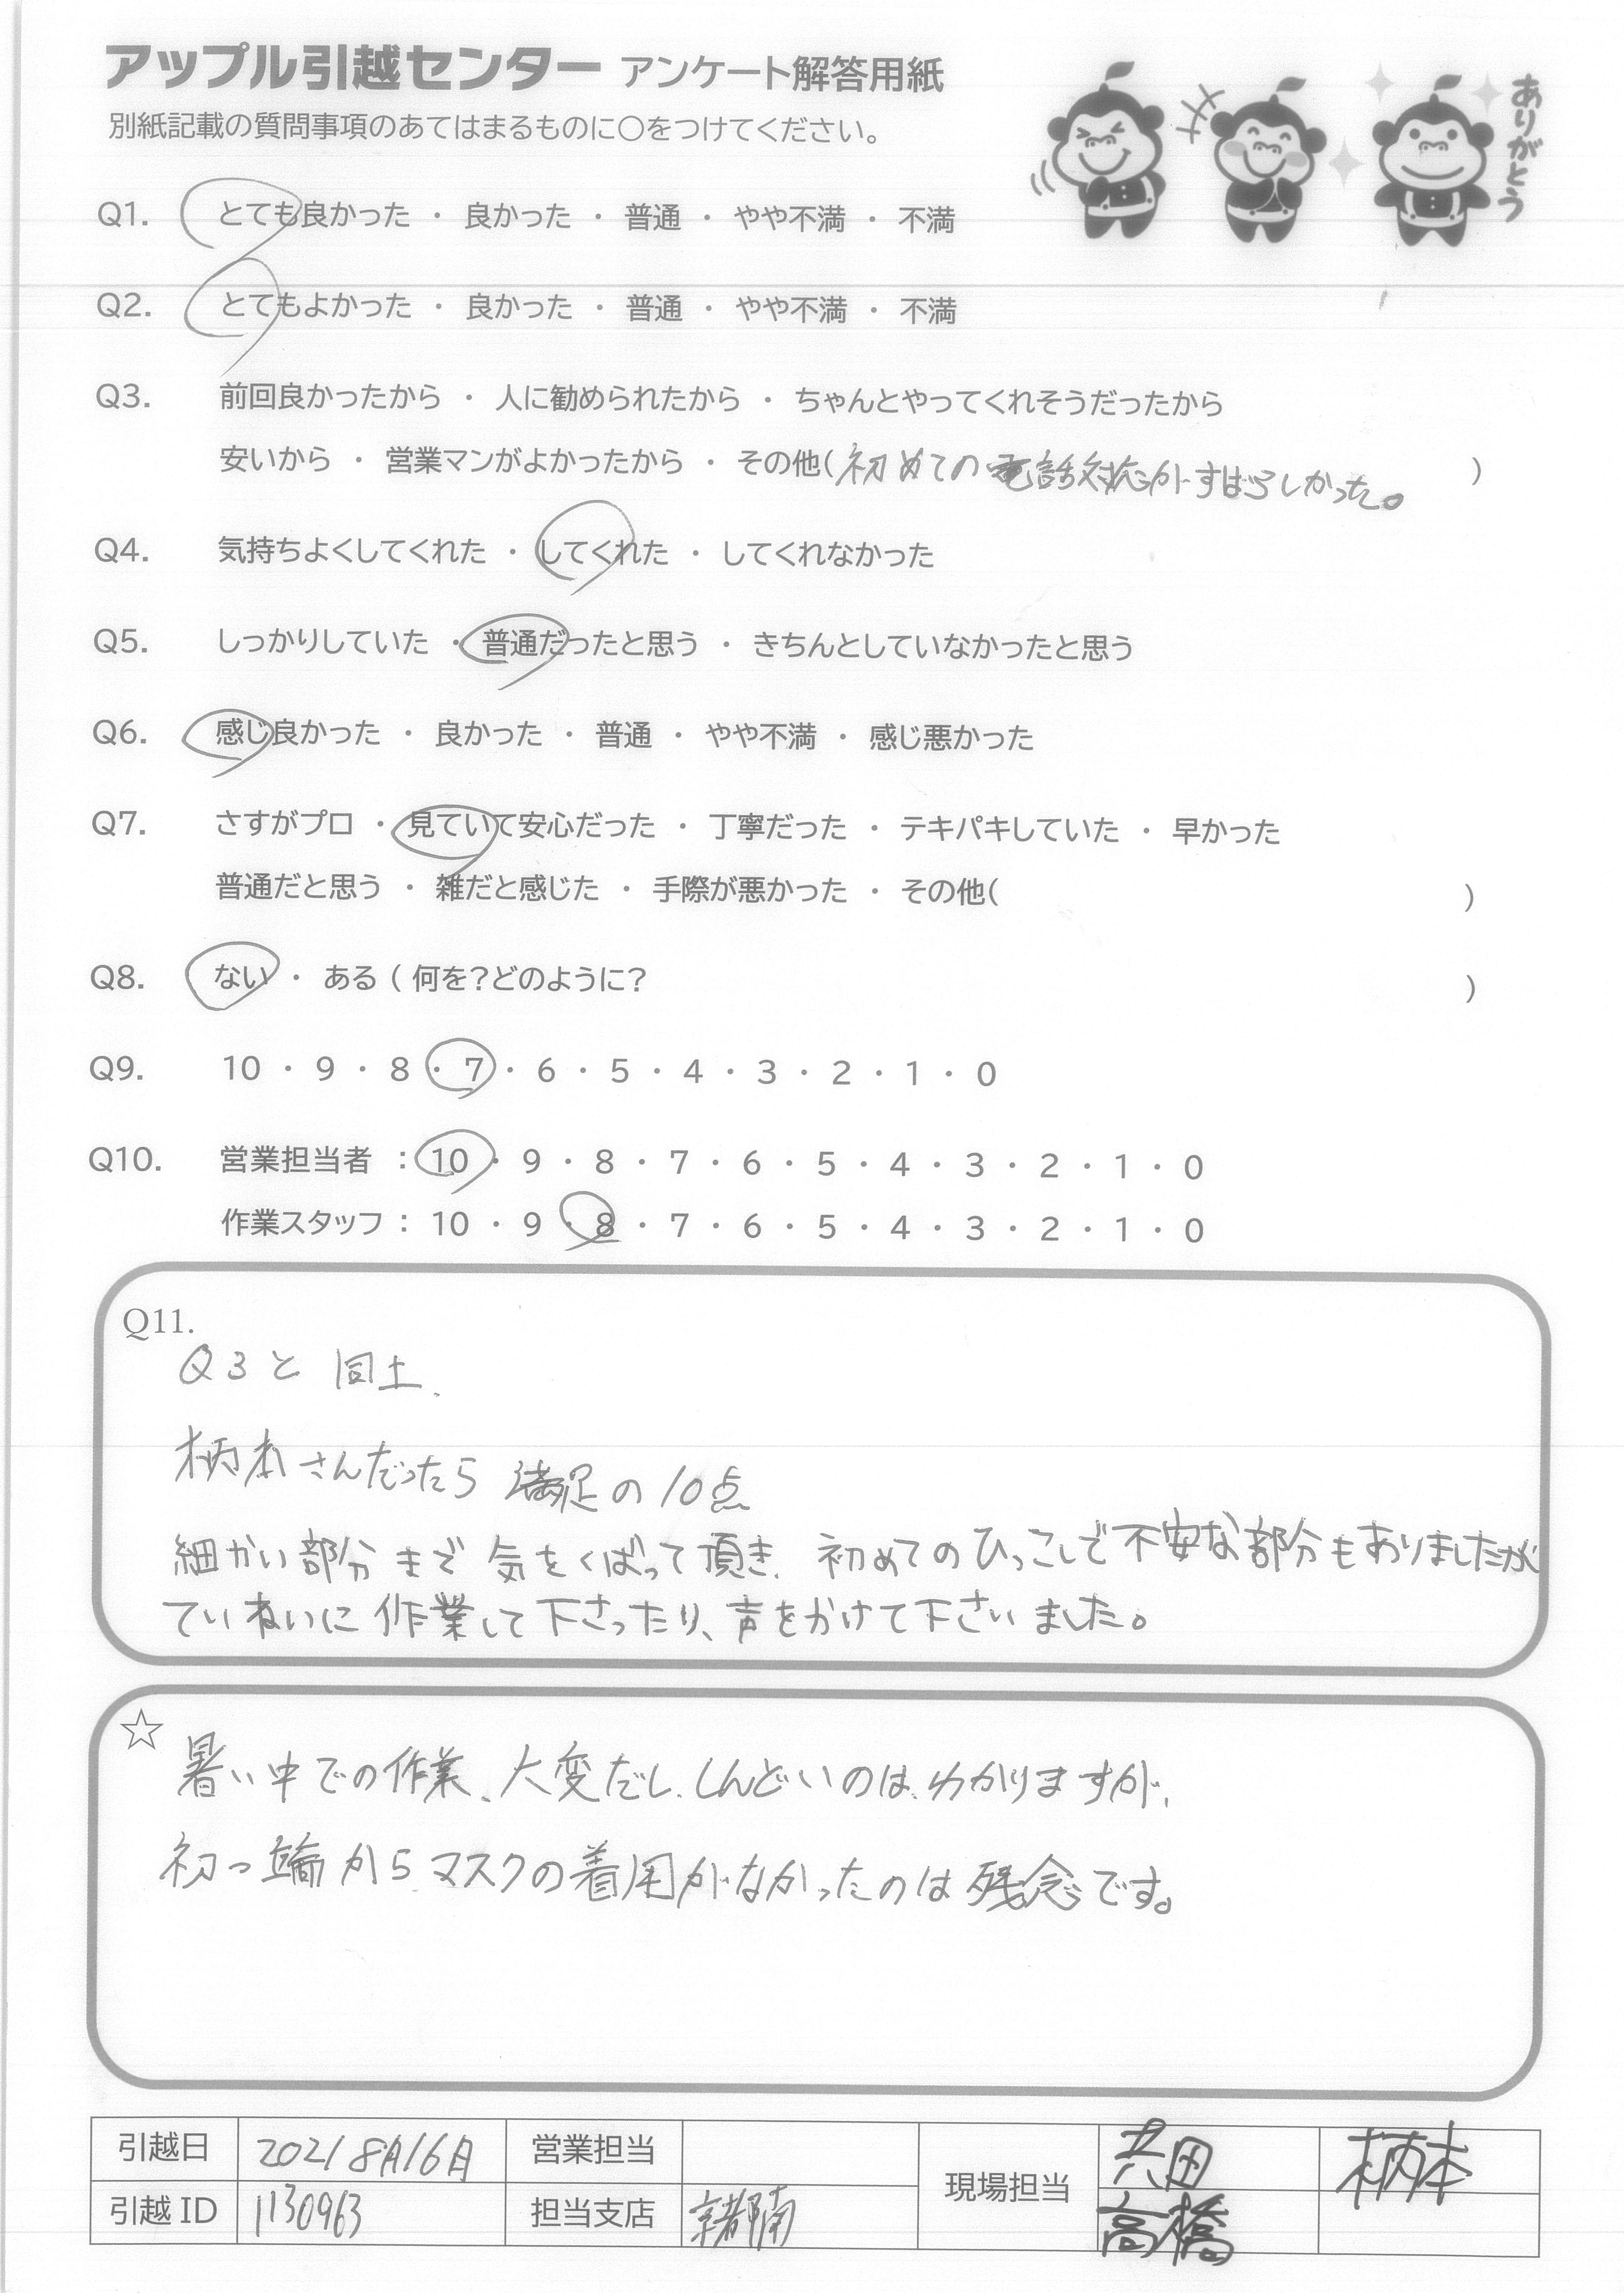 アップル引越センター アンケート解答用紙
別紙記載の質問事項のあてはまるものに○をつけてください。
ありがとう
Q1. とても良かった ・ 良かった ・ 普通 ・ やや不満 ・ 不満
Q2. とてもよかった ・ 良かった ・ 普通 ・ やや不満 ・ 不満
Q3. 前回良かったから ・ 人に勧められたから ・ ちゃんとやってくれそうだったから
安いから ・ 営業マンがよかったから ・ その他(初めての電話対応がすばらしかった。)
Q4. 気持ちよくしてくれた ・ してくれた ・ してくれなかった
Q5. しっかりしていた ・ 普通だったと思う ・ きちんとしていなかったと思う
Q6. 感じ良かった ・ 良かった ・ 普通 ・ やや不満 ・ 感じ悪かった
Q7. さすがプロ ・ 見ていて安心だった ・ 丁寧だった ・ テキパキしていた ・ 早かった
普通だと思う ・ 雑だと感じた ・ 手際が悪かった ・ その他( )
Q8. ない ・ ある ( 何を?どのように? )
Q9. 10 ・ 9 ・ 8 ・ 7 ・ 6 ・ 5 ・ 4 ・ 3 ・ 2 ・ 1 ・ 0
Q10. 営業担当者 : 10 ・ 9 ・ 8 ・ 7 ・ 6 ・ 5 ・ 4 ・ 3 ・ 2 ・ 1 ・ 0
作業スタッフ : 10 ・ 9 ・ 8 ・ 7 ・ 6 ・ 5 ・ 4 ・ 3 ・ 2 ・ 1 ・ 0
Q11.
Q3と 同土.
柄本さんだったら 満足の10点
細かい部分まで 気をくばって頂き、初めてのひっこしで不安な部分もありましたが
ていねいに作業して下さったり、声をかけて下さいました。
☆
暑い中での作業、大変だし、しんどいのは、わかりますが、
初っ端からマスクの着用がなかったのは残念です。
引越日 2021 8月16日 営業担当 現場担当 柄本
引越ID 1130963 担当支店 京都南 高橋